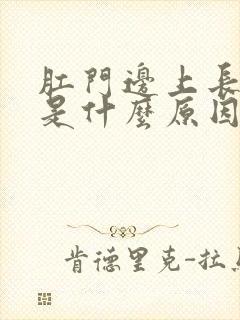 肛門邊上長
是什麼原因
肯德里克-拉